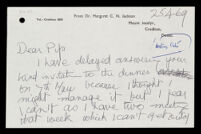 From Dr. Margaret C. N. Jackson
Mount Jocelyn,
Crediton,
Devon.
25.4.69
Dear Pip,
I have delayed answering your
kind invitate to the dinner
on 7th May because I thought I
might manage it but I fear
I can't as I have two meetings
that week which I can't get out of